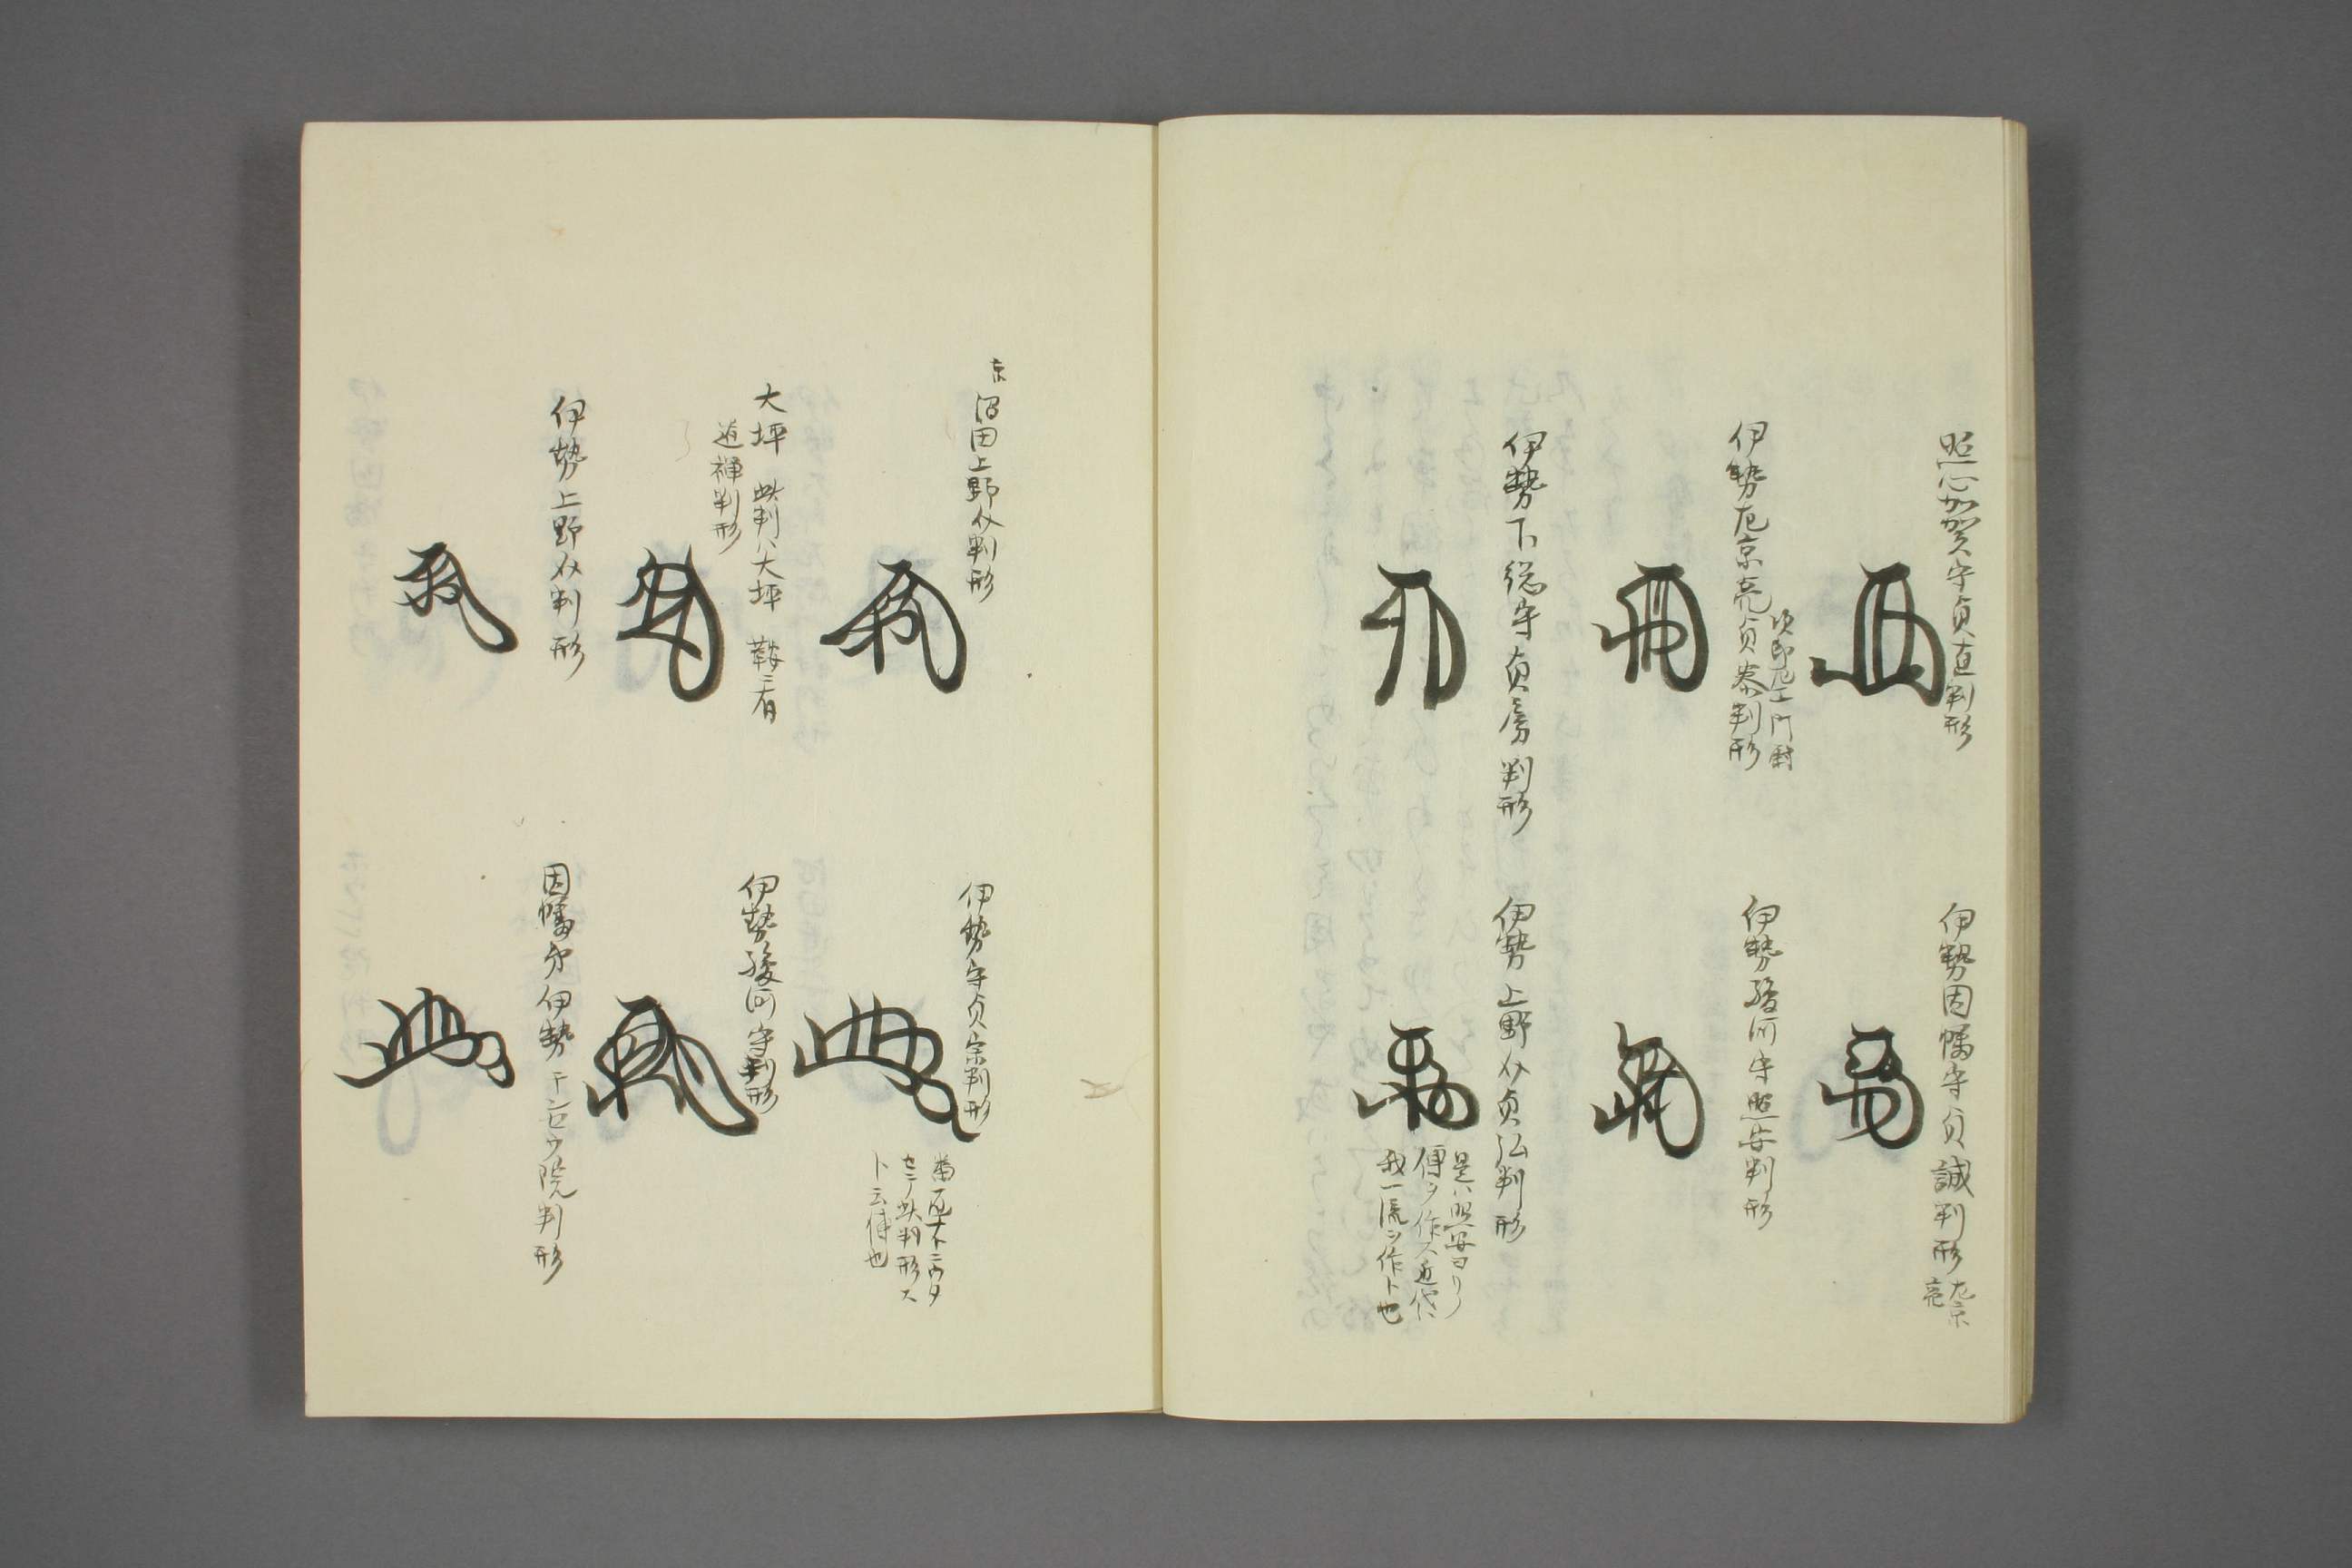 照心加賀守貞直判形
伊勢因幡守貞誠判形
左京
亮
次郎左エ門尉
伊勢左京亮貞泰判形
伊勢駿河守照安判形
伊勢下総守貞房判形
伊勢上野介貞弘判形
是ハ照安ヨリノ
傳ヲ作ス近代ハ
我一流ヲ作ト也
京
沼田上野介判形
伊勢守貞宗判形
セニノ此判形ス
ト云傳也
大坪 此判ハ大坪 鞍ニ有
道禅判形
伊勢駿河守判形
伊勢上野介判形
因幡守伊勢
院判形